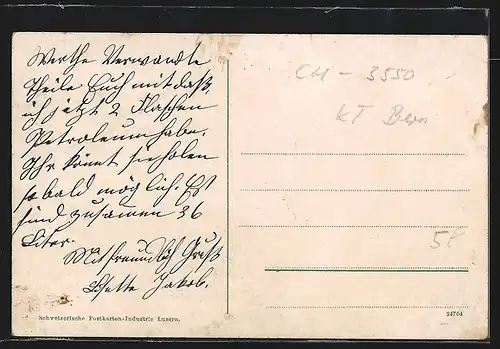 Werthe Verwandte
Theile Euch mit daß
ich jetzt 2 Flaschen
Petroleum habe.
Ihr könnt sie holen
so bald möglich. Est
sind zusamen 36
Liter.
Mit freundlich Gruß
Lisette Jakob.
Schweizerische Postkarten-Industrie Luzern.
CH - 3550
KT Bern
58
24704